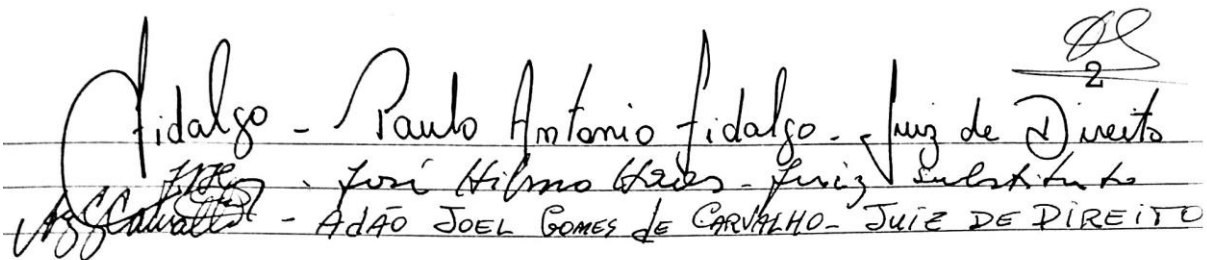 2
Fidalgo - Paulo Antonio Fidalgo - Juiz de Direito
- José Hilmo - Juiz Substituto
- ADÃO JOEL GOMES de CARVALHO - JUIZ DE DIREITO